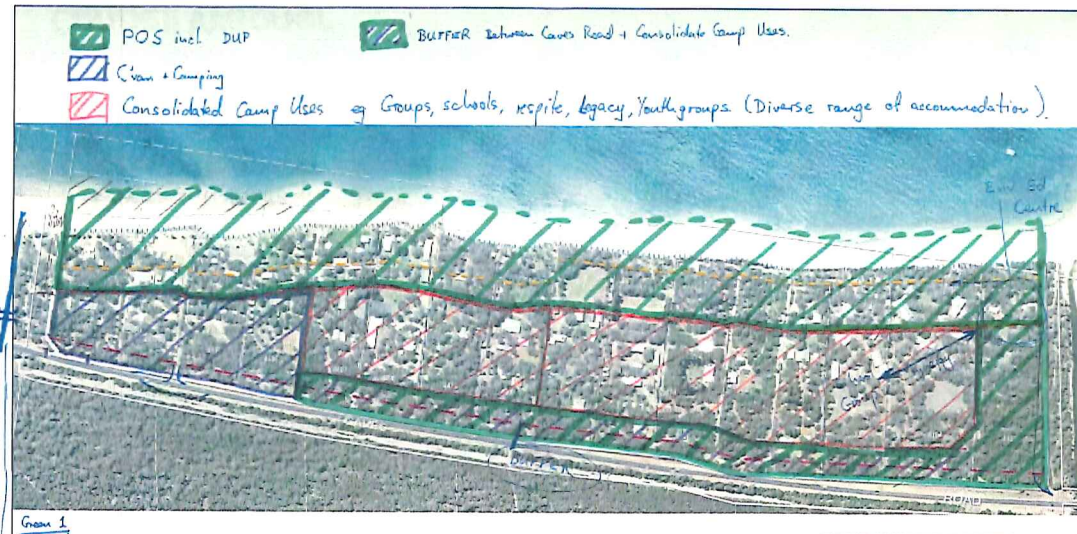 POS incl DUP
BUFFER Between Caves Road + Consolidate Camp Uses.
C'van + Camping
Consolidated Camp Uses eg Groups, schools, respite, legacy, Youthgroups (Diverse range of accommodation).
Env Ed
Centre
Group
BUFFER
ROAD
Green 1